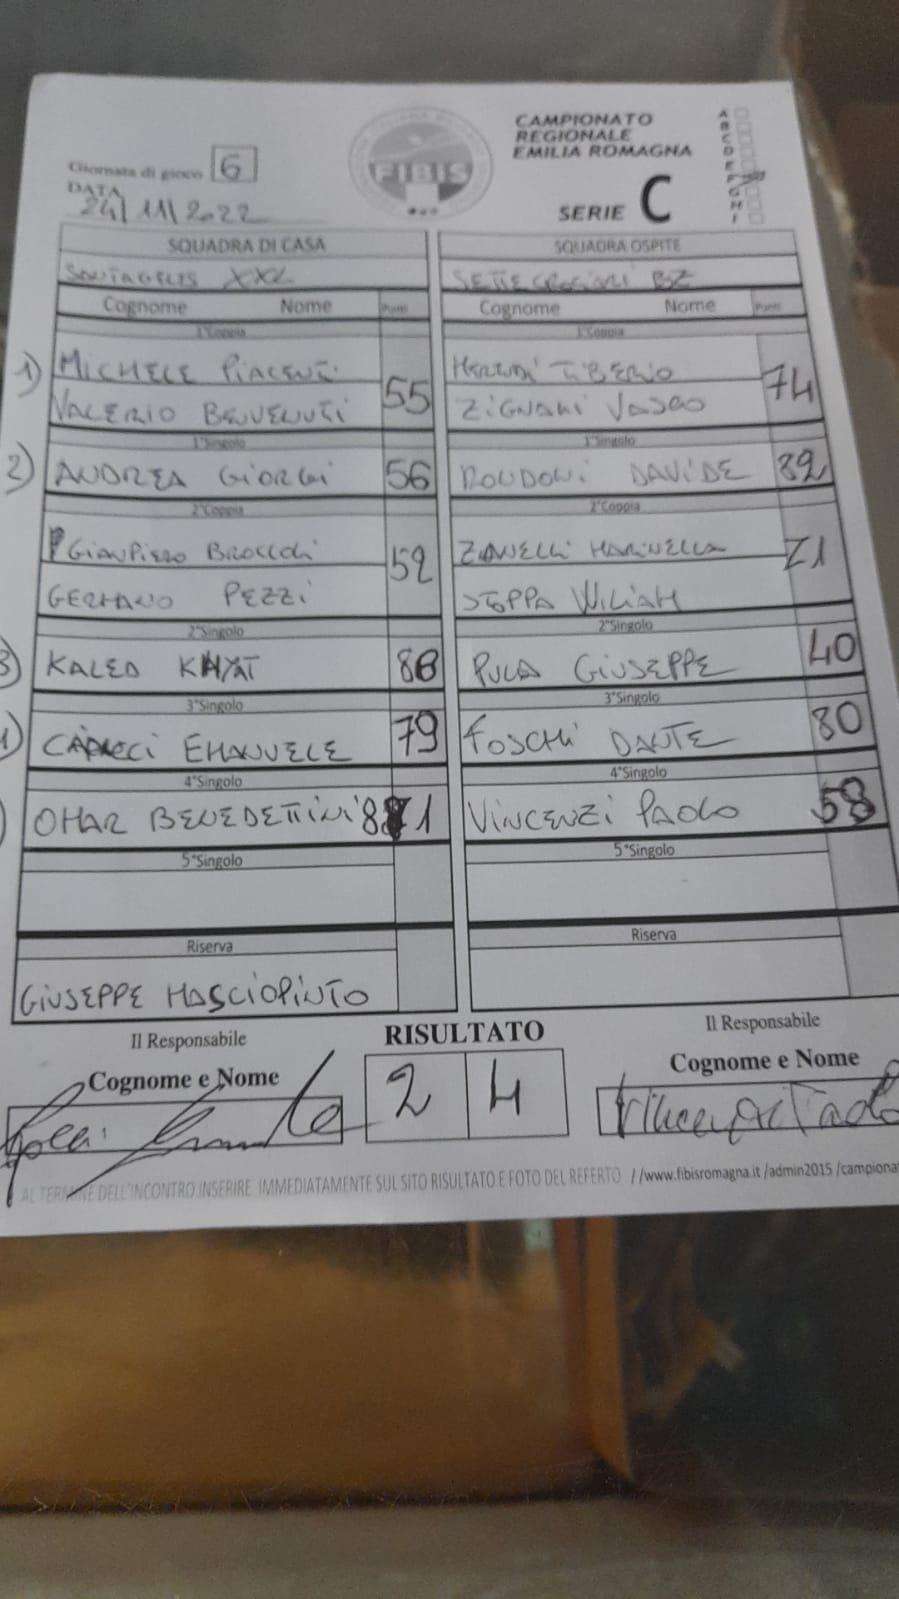 CAMPIONATO
REGIONALE
EMILIA ROMAGNA
Giornata di gioco 6
FIBIS
DATA 24/11/2022
SERIE C
A B C D E F G H I
SQUADRA DI CASA SQUADRA OSPITE
XXL SETTECROCIARI BZ
Cognome Nome Punti Cognome Nome Punti
1°Coppia 1°Coppia
1) MICHELE PIACENTI HERRDI TIBERIO
55 74
VALERIO BENVENUTI ZIGNANI VASCO
1°Singolo 1°Singolo
2) ANDREA GIORGI 56 RONDONI DAVIDE 82
2°Coppia 2°Coppia
GIANPIERO BROCCOLI ZANELLI MARINELLA
52 71
GERMANO PEZZI STOPPA WILIAM
2°Singolo 2°Singolo
3) KALED KHYAT 88 PULA GIUSEPPE 40
3°Singolo 3°Singolo
EMANUELE 79 FOSCHI DANTE 80
4°Singolo 4°Singolo
OMAR BENEDETTINI 81 VINCENZI PAOLO 58
5°Singolo 5°Singolo
Riserva Riserva
GIUSEPPE MASCIOPINTO
Il Responsabile RISULTATO Il Responsabile
Cognome e Nome 2 4 Cognome e Nome
AL TERMINE DELL'INCONTRO INSERIRE IMMEDIATAMENTE SUL SITO RISULTATO E FOTO DEL REFERTO //www.fibisromagna.it /admin2015 /campiona